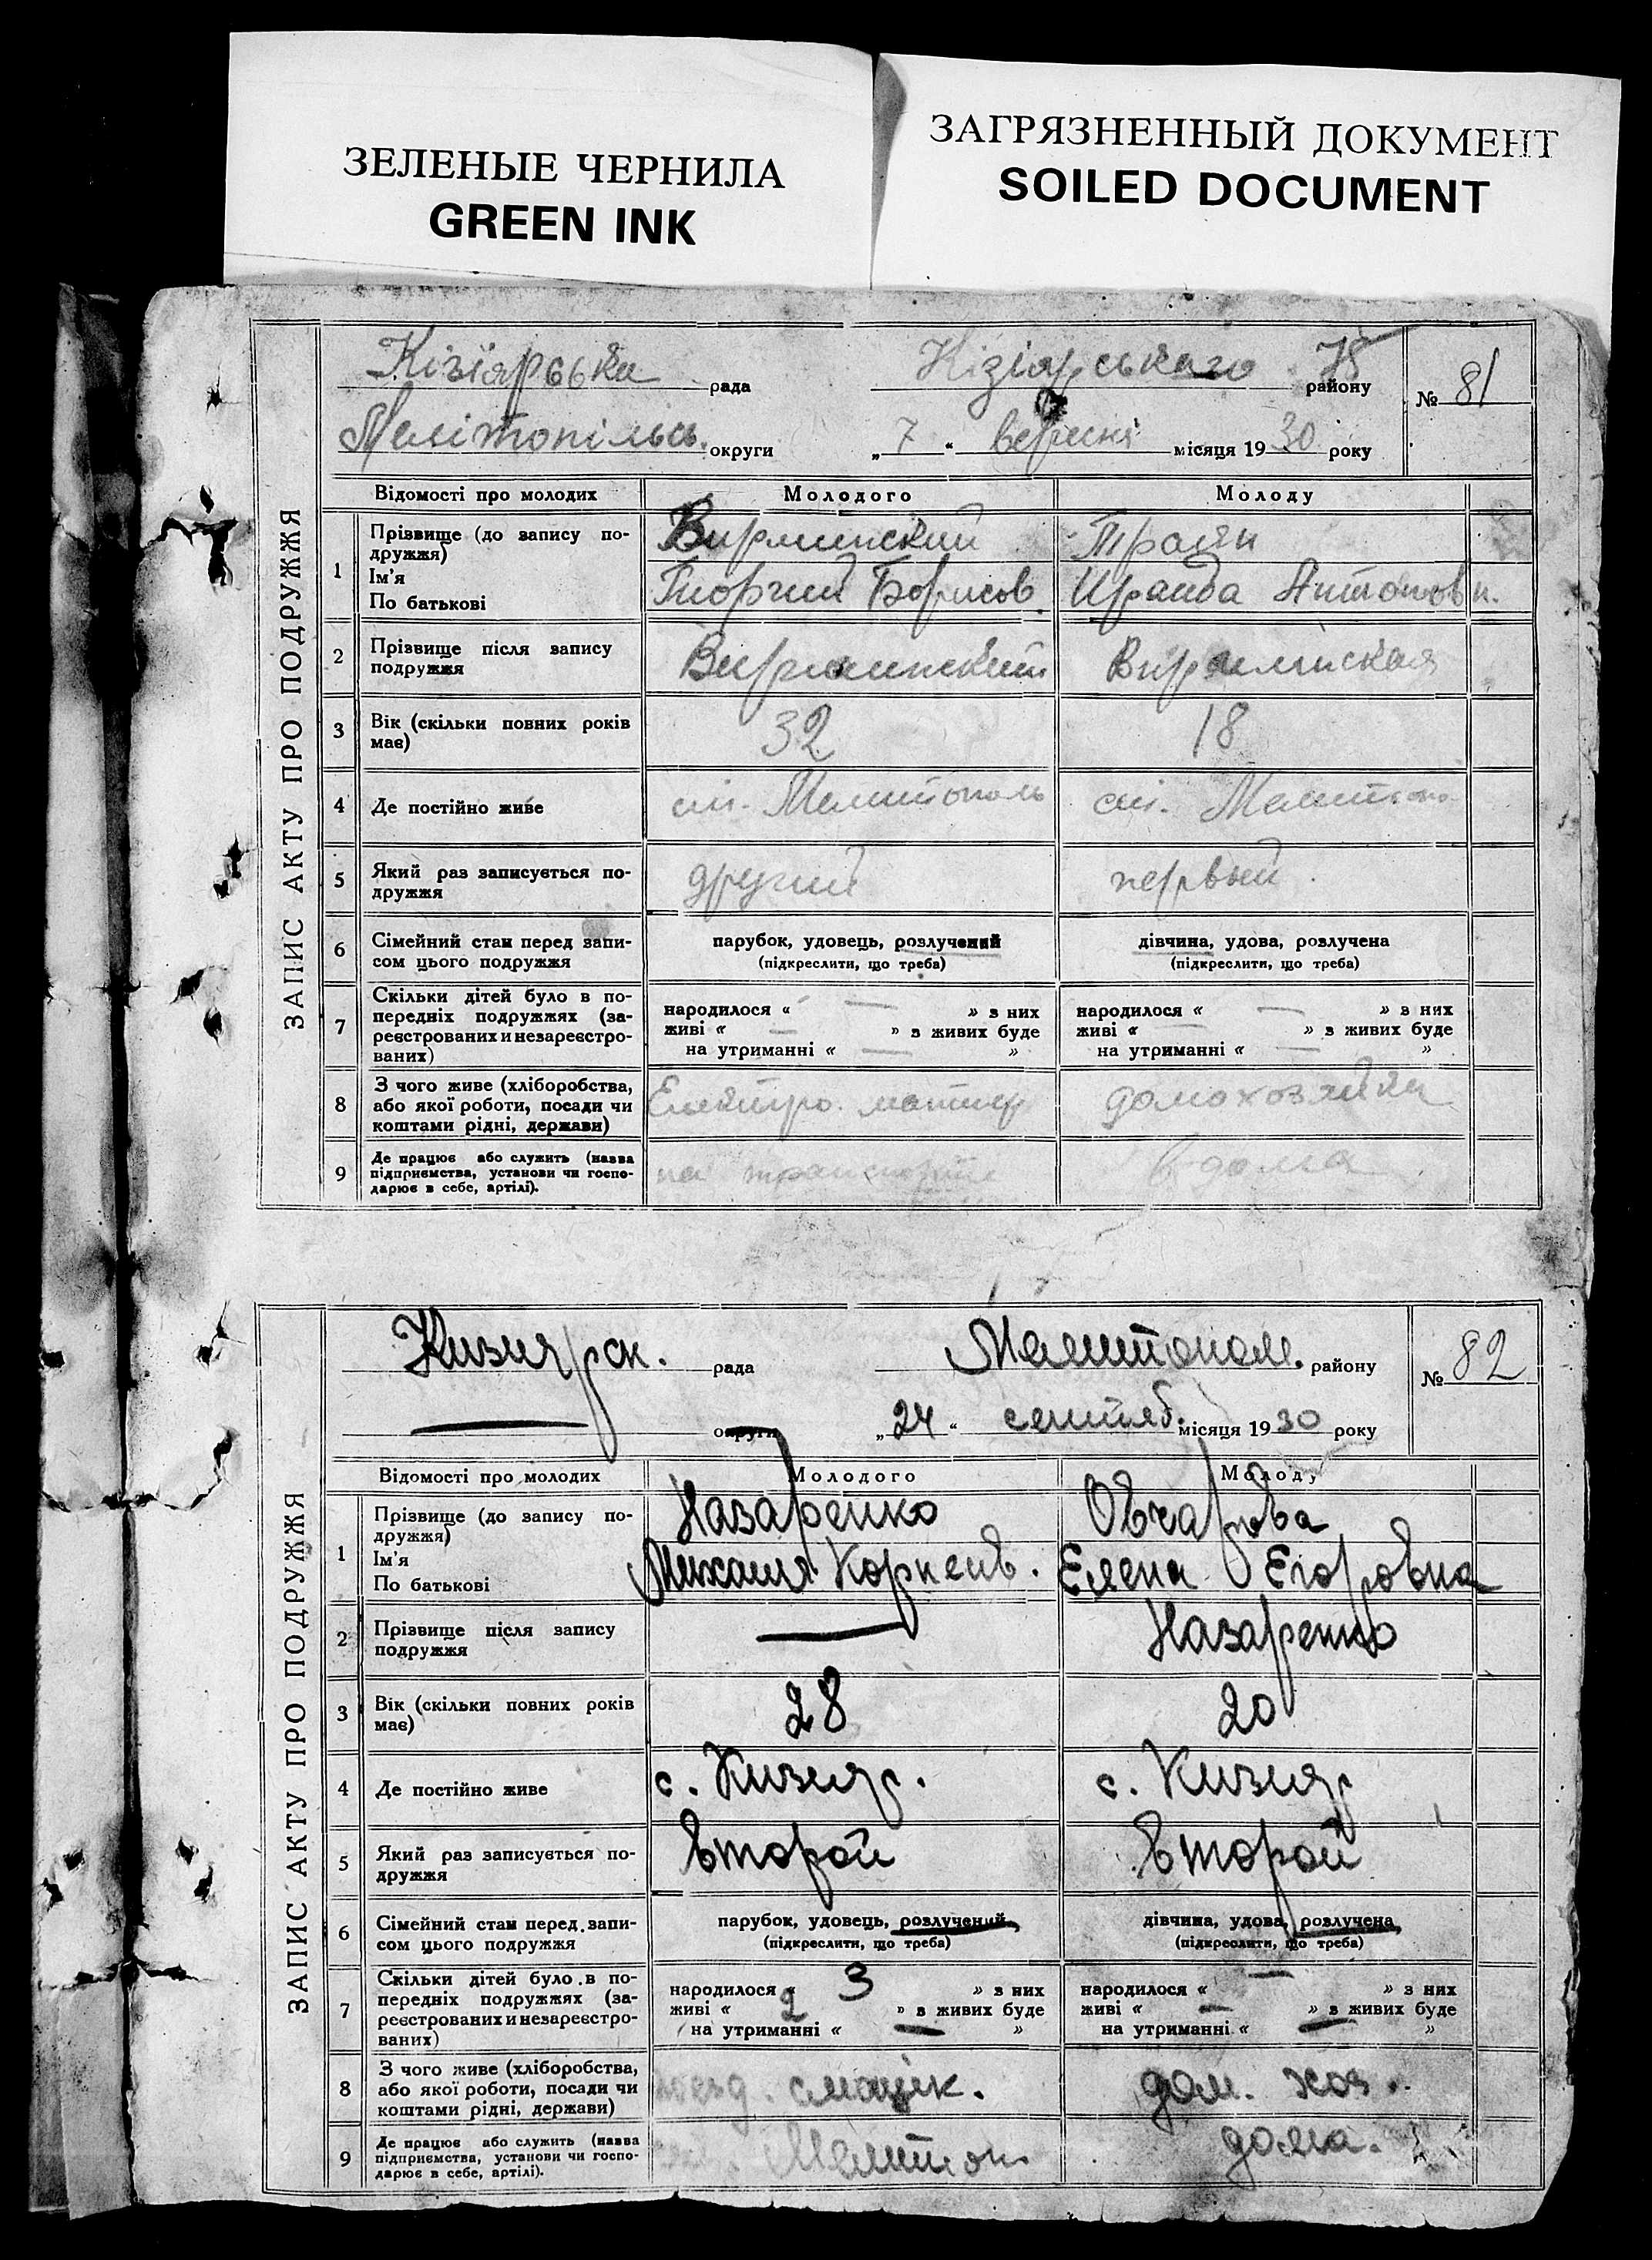 ЗЕЛЕНЫЕ ЧЕРНИЛА
GREEN INK
ЗАГРЯЗНЕННЫЙ ДОКУМЕНТ
SOILED DOCUMENT
ЗАПИС АКТУ ПРО ПОДРУЖЖЯ
Кізіярська рада Кізіярського району № 81
Мелітопільсь. округи „7“ вересня місяця 1930 року
Відомості про молодих Молодого Молоду
1 Прізвище (до запису по-
дружжя)
Ім'я
По батькові
Вирминский Траян
Георгий Борисов. Ираида Антоновн.
2 Прізвище після запису
подружжя
Вирминский Вирминская
3 Вік (скільки повних років
має)
32 18
4 Де постійно живе
ст. Мелитополь ст. Мелитопо
5 Який раз записується по-
дружжя
другий первый
6 Сімейний стан перед запи-
сом цього подружжя
парубок, удовець, розлучений
(підкреслити, що треба)
дівчина, удова, розлучена
(підкреслити, що треба)
7 Скільки дітей було в по-
передніх подружжях (за-
реєстрованих и незареєстро-
ваних)
народилося « — » з них
живі « — » з живих буде
на утриманні « — »
народилося « — » з них
живі « — » з живих буде
на утриманні « — »
8 З чого живе (хліборобства,
або якої роботи, посади чи
коштами рідні, держави)
Електро. монтер домохозяйка
9 Де працює або служить (назва
підприємства, установи чи госпо-
дарює в себе, артілі).
на транспорте дома
ЗАПИС АКТУ ПРО ПОДРУЖЖЯ
Кизиярск. рада Мелитопол. району № 82
— округи „24“ сентяб. місяця 1930 року
Відомості про молодих Молодого Молоду
1 Прізвище (до запису по-
дружжя)
Ім'я
По батькові
Назаренко Овчарова
Михаил Корнеев. Елена Егоровна
2 Прізвище після запису
подружжя
— Назаренко
3 Вік (скільки повних років
має)
28 20
4 Де постійно живе
с. Кизияр. с. Кизияр
5 Який раз записується по-
дружжя
второй второй
6 Сімейний стан перед запи-
сом цього подружжя
парубок, удовець, розлучений
(підкреслити, що треба)
дівчина, удова, розлучена
(підкреслити, що треба)
7 Скільки дітей було в по-
передніх подружжях (за-
реєстрованих и незареєстро-
ваних)
народилося « 3 » з них
живі « 2 » з живих буде
на утриманні « — »
народилося « — » з них
живі « — » з живих буде
на утриманні « — »
8 З чого живе (хліборобства,
або якої роботи, посади чи
коштами рідні, держави)
поезд. смащик. дом. хоз.
9 Де працює або служить (назва
підприємства, установи чи госпо-
дарює в себе, артілі).
Мелитоп. дома.